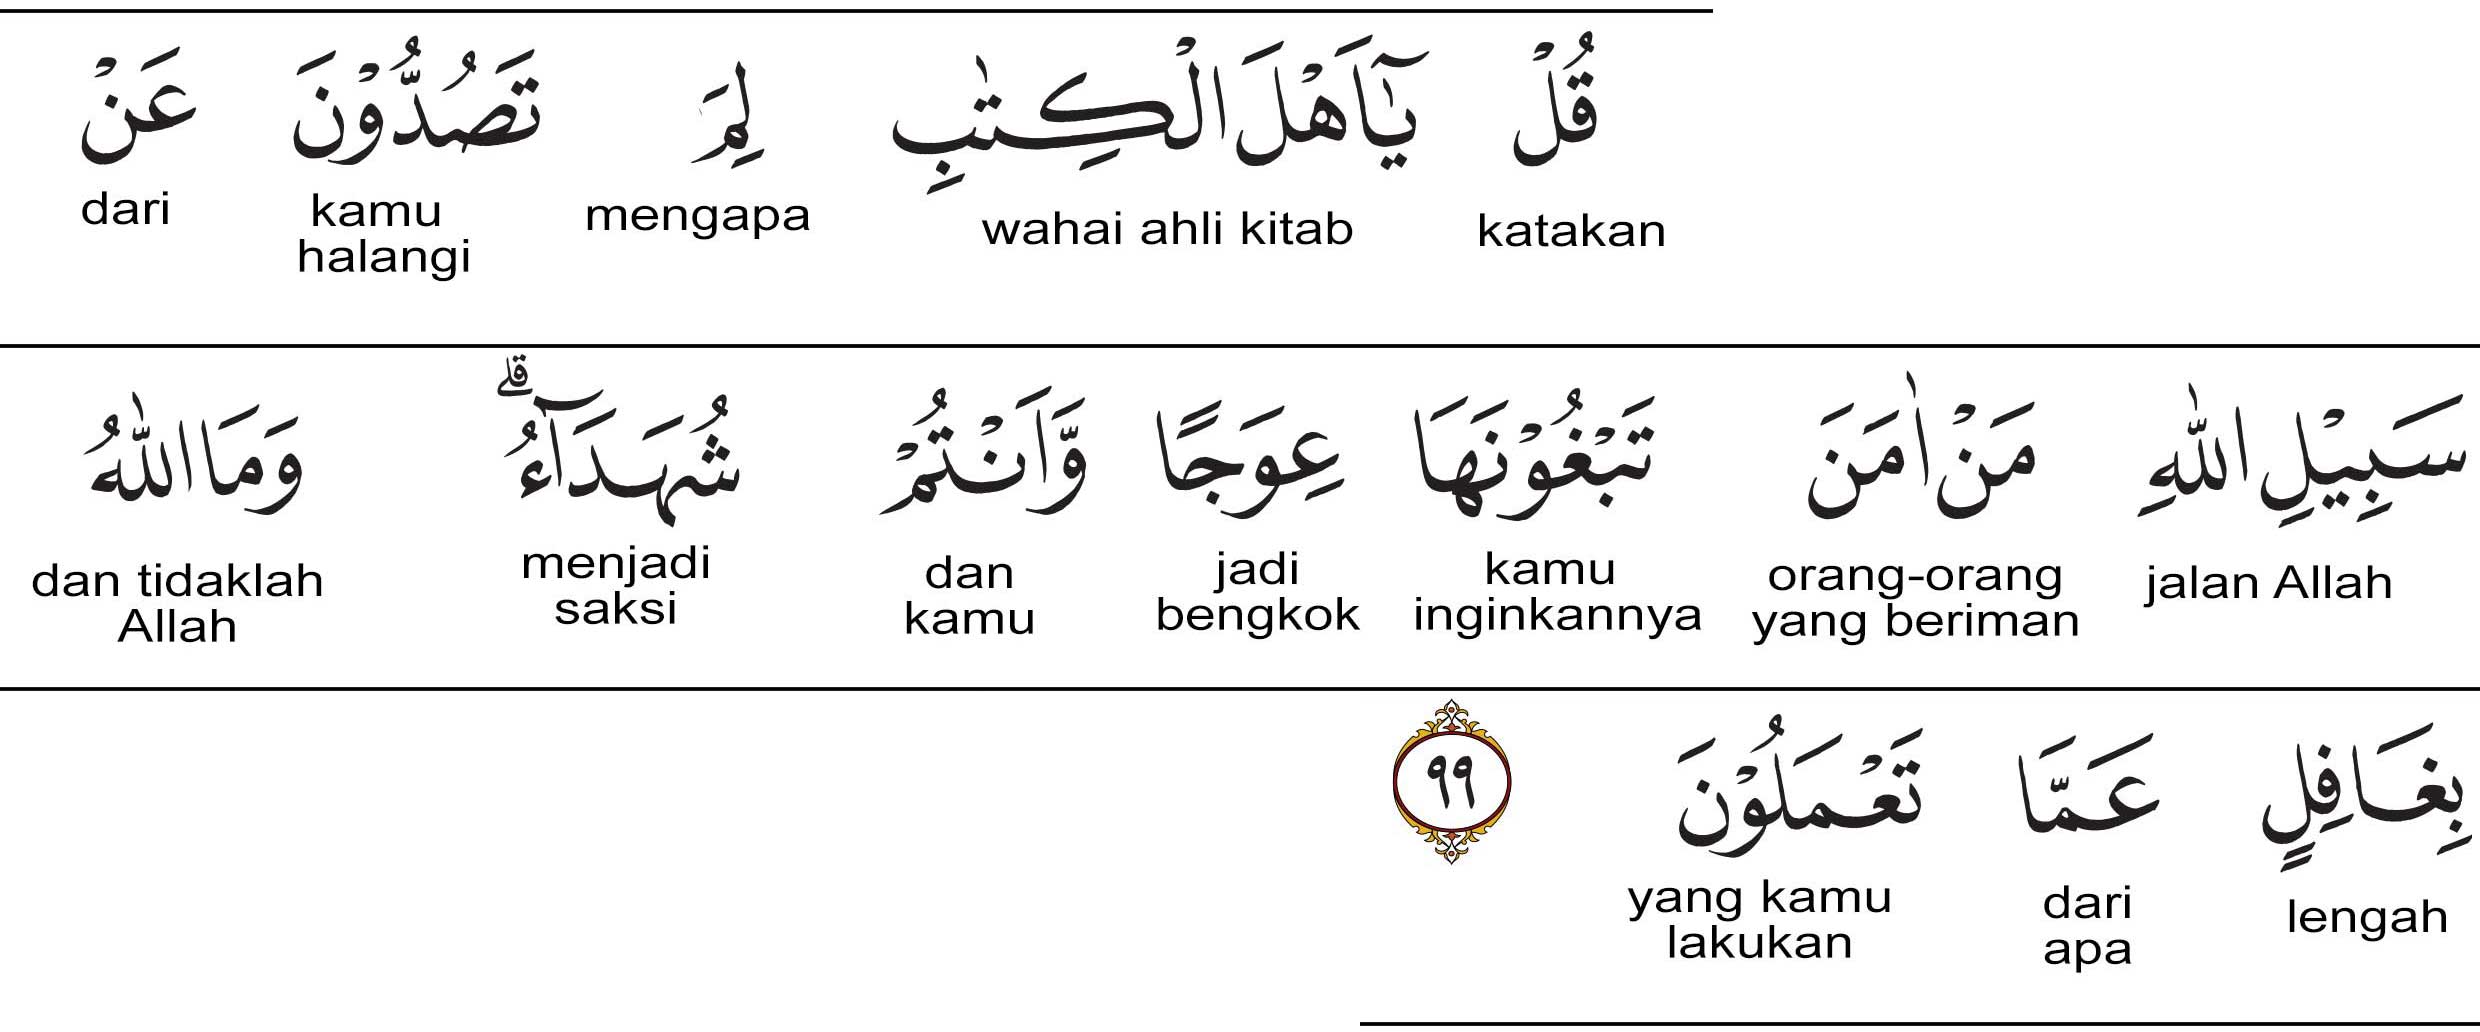 قُلْ يٰٓاَهْلَ الْكِتٰبِ لِمَ تَصُدُّوْنَ عَنْ
katakan wahai ahli kitab mengapa kamu halangi dari
سَبِيْلِ اللّٰهِ مَنْ اٰمَنَ تَبْغُوْنَهَا عِوَجًا وَّاَنْتُمْ شُهَدَاۤءُ ۗ وَمَا اللّٰهُ
jalan Allah orang-orang yang beriman kamu inginkannya jadi bengkok dan kamu menjadi saksi dan tidaklah Allah
بِغَافِلٍ عَمَّا تَعْمَلُوْنَ ٩٩
lengah dari apa yang kamu lakukan